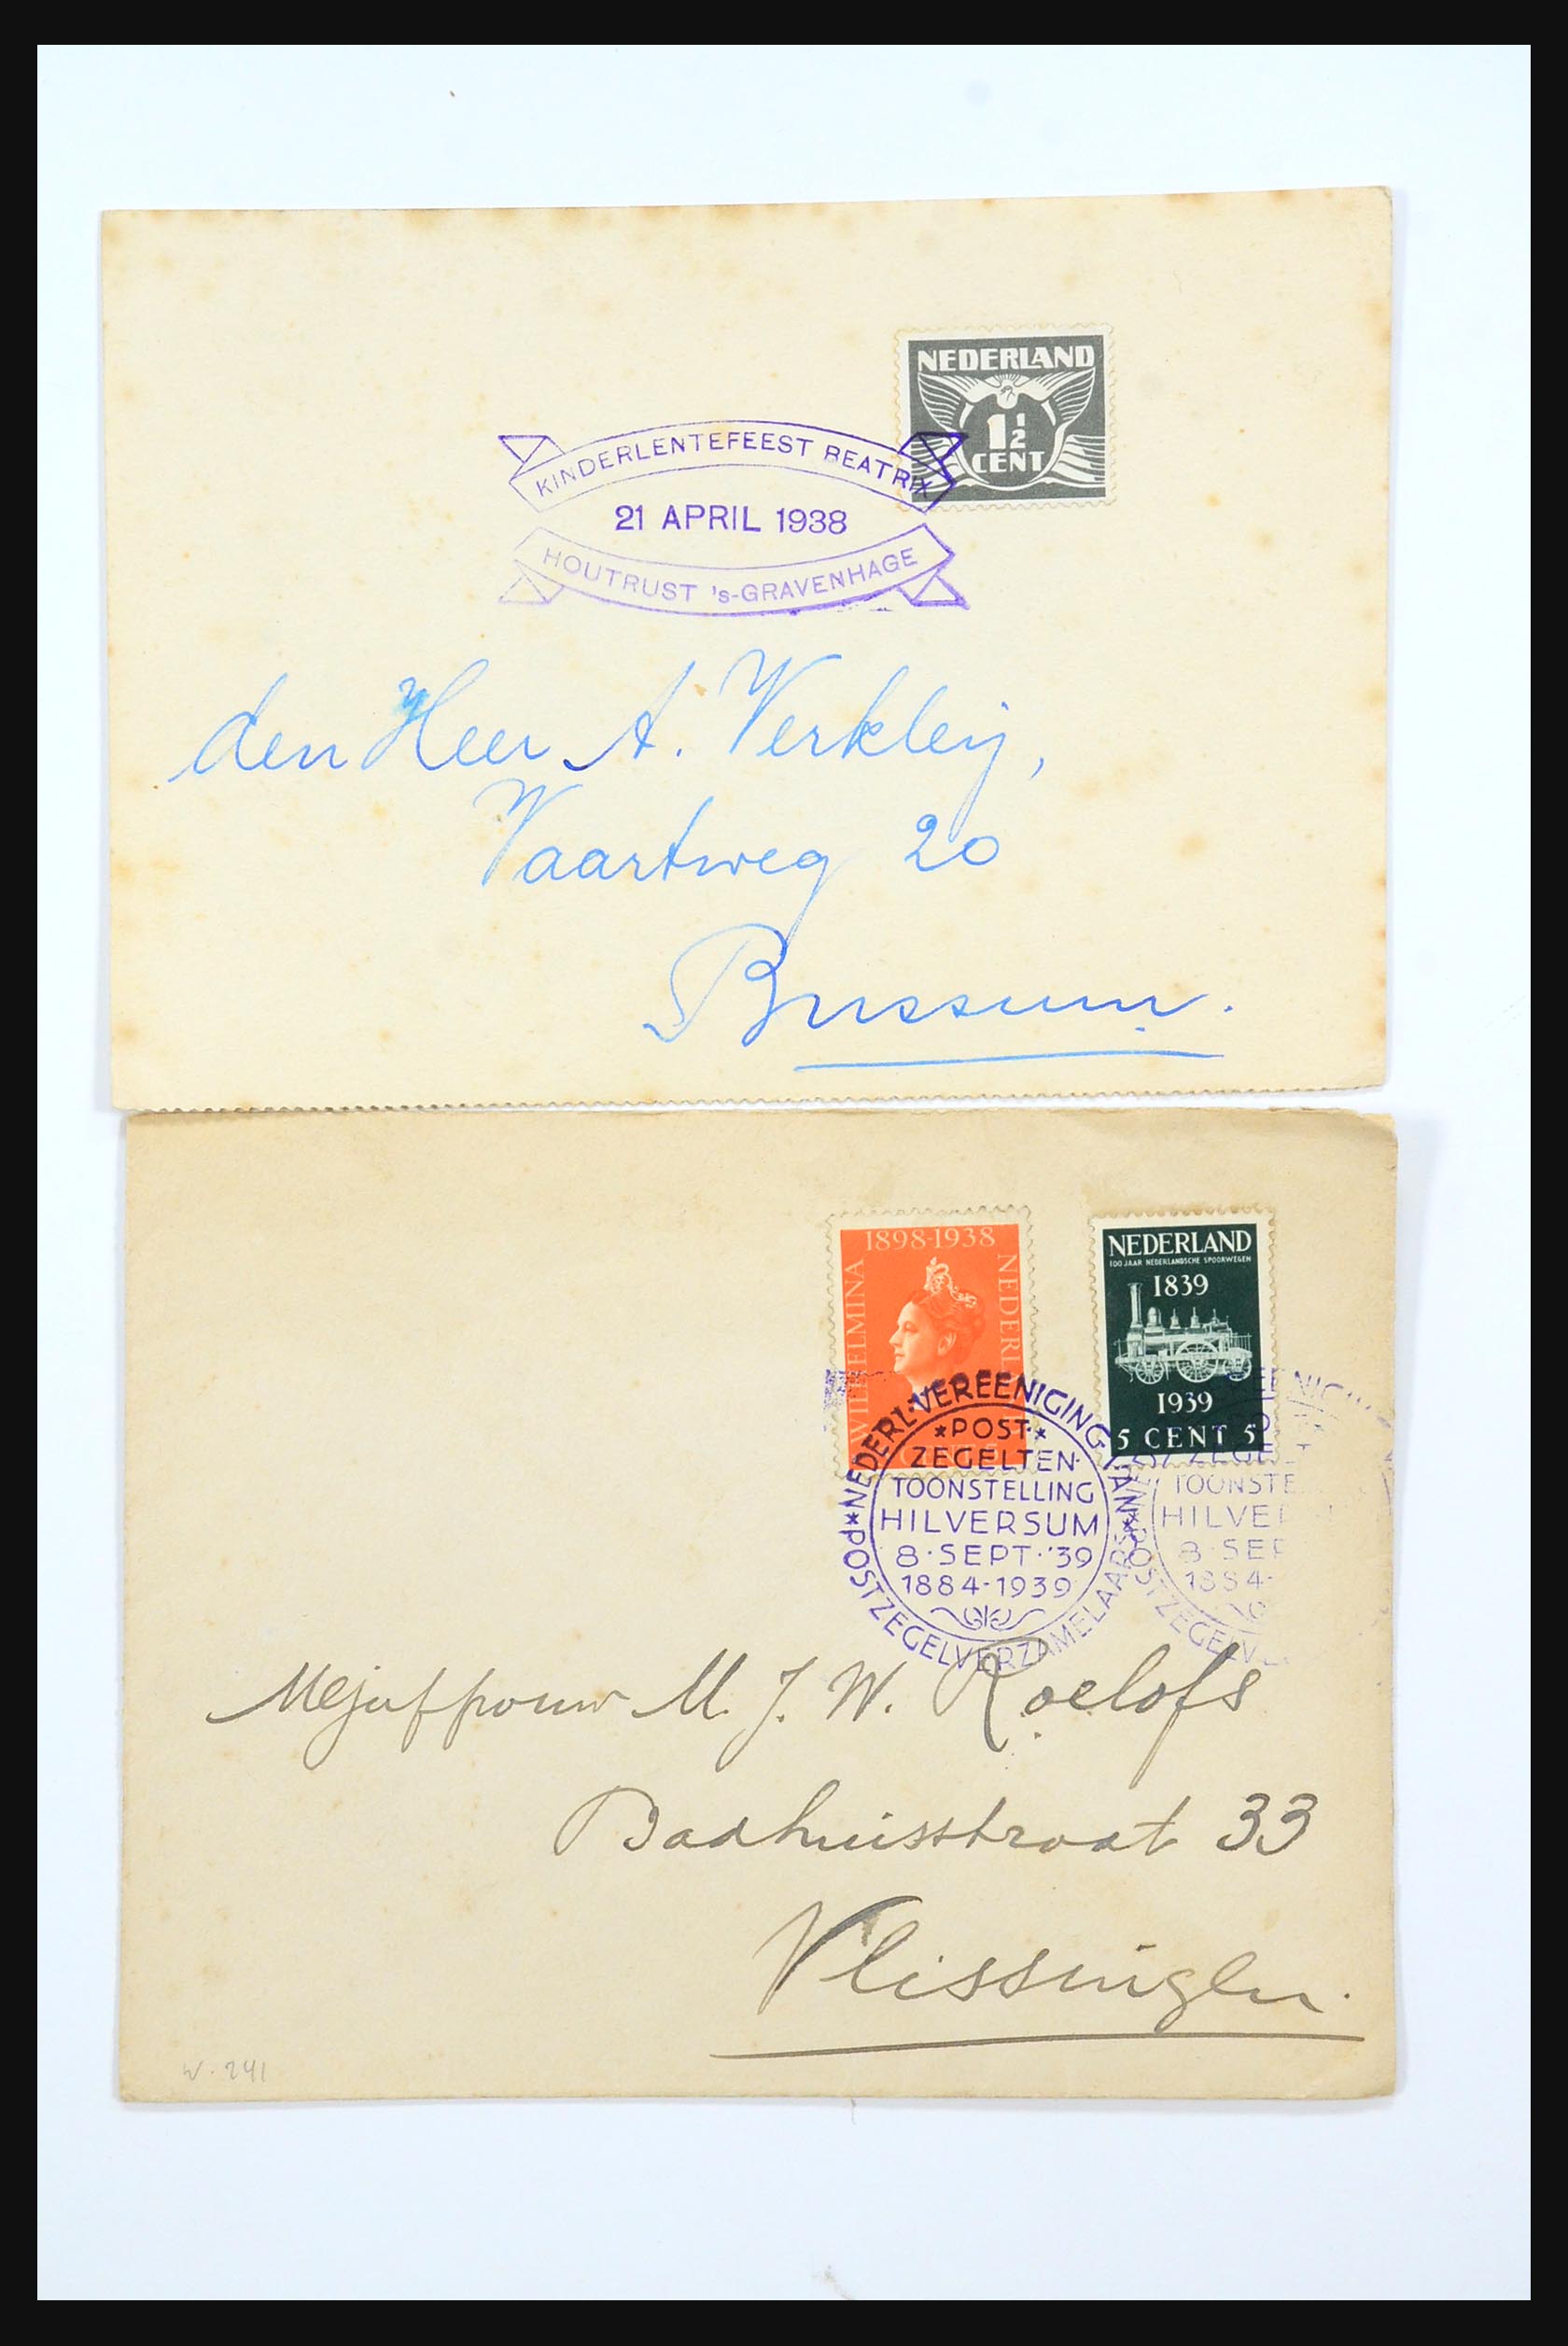 NEDERLAND
1½
CENT
KINDERLENTEFEEST BEATRIX
21 APRIL 1938
HOUTRUST 's-GRAVENHAGE
den Heer A. Verkleij,
Vaartweg 20
Bussum.
1898-1938
WILHELMINA
NEDERL
NEDERLAND
100 JAAR NEDERLANDSCHE SPOORWEGEN
1839
1939
5 CENT 5
*NEDERL·VEREENIGING VAN*
POSTZEGELVERZAMELAARS
*POST*
ZEGELTEN-
TOONSTELLING
HILVERSUM
8·SEPT·'39
1884-1939
ZEGEL
TOONSTE
HILVE
8·SEP
1884-
POSTZEGELVE
Mejuffrouw M. J. W. Roelofs
Badhuisstraat 33
Vlissingen.
W. 241